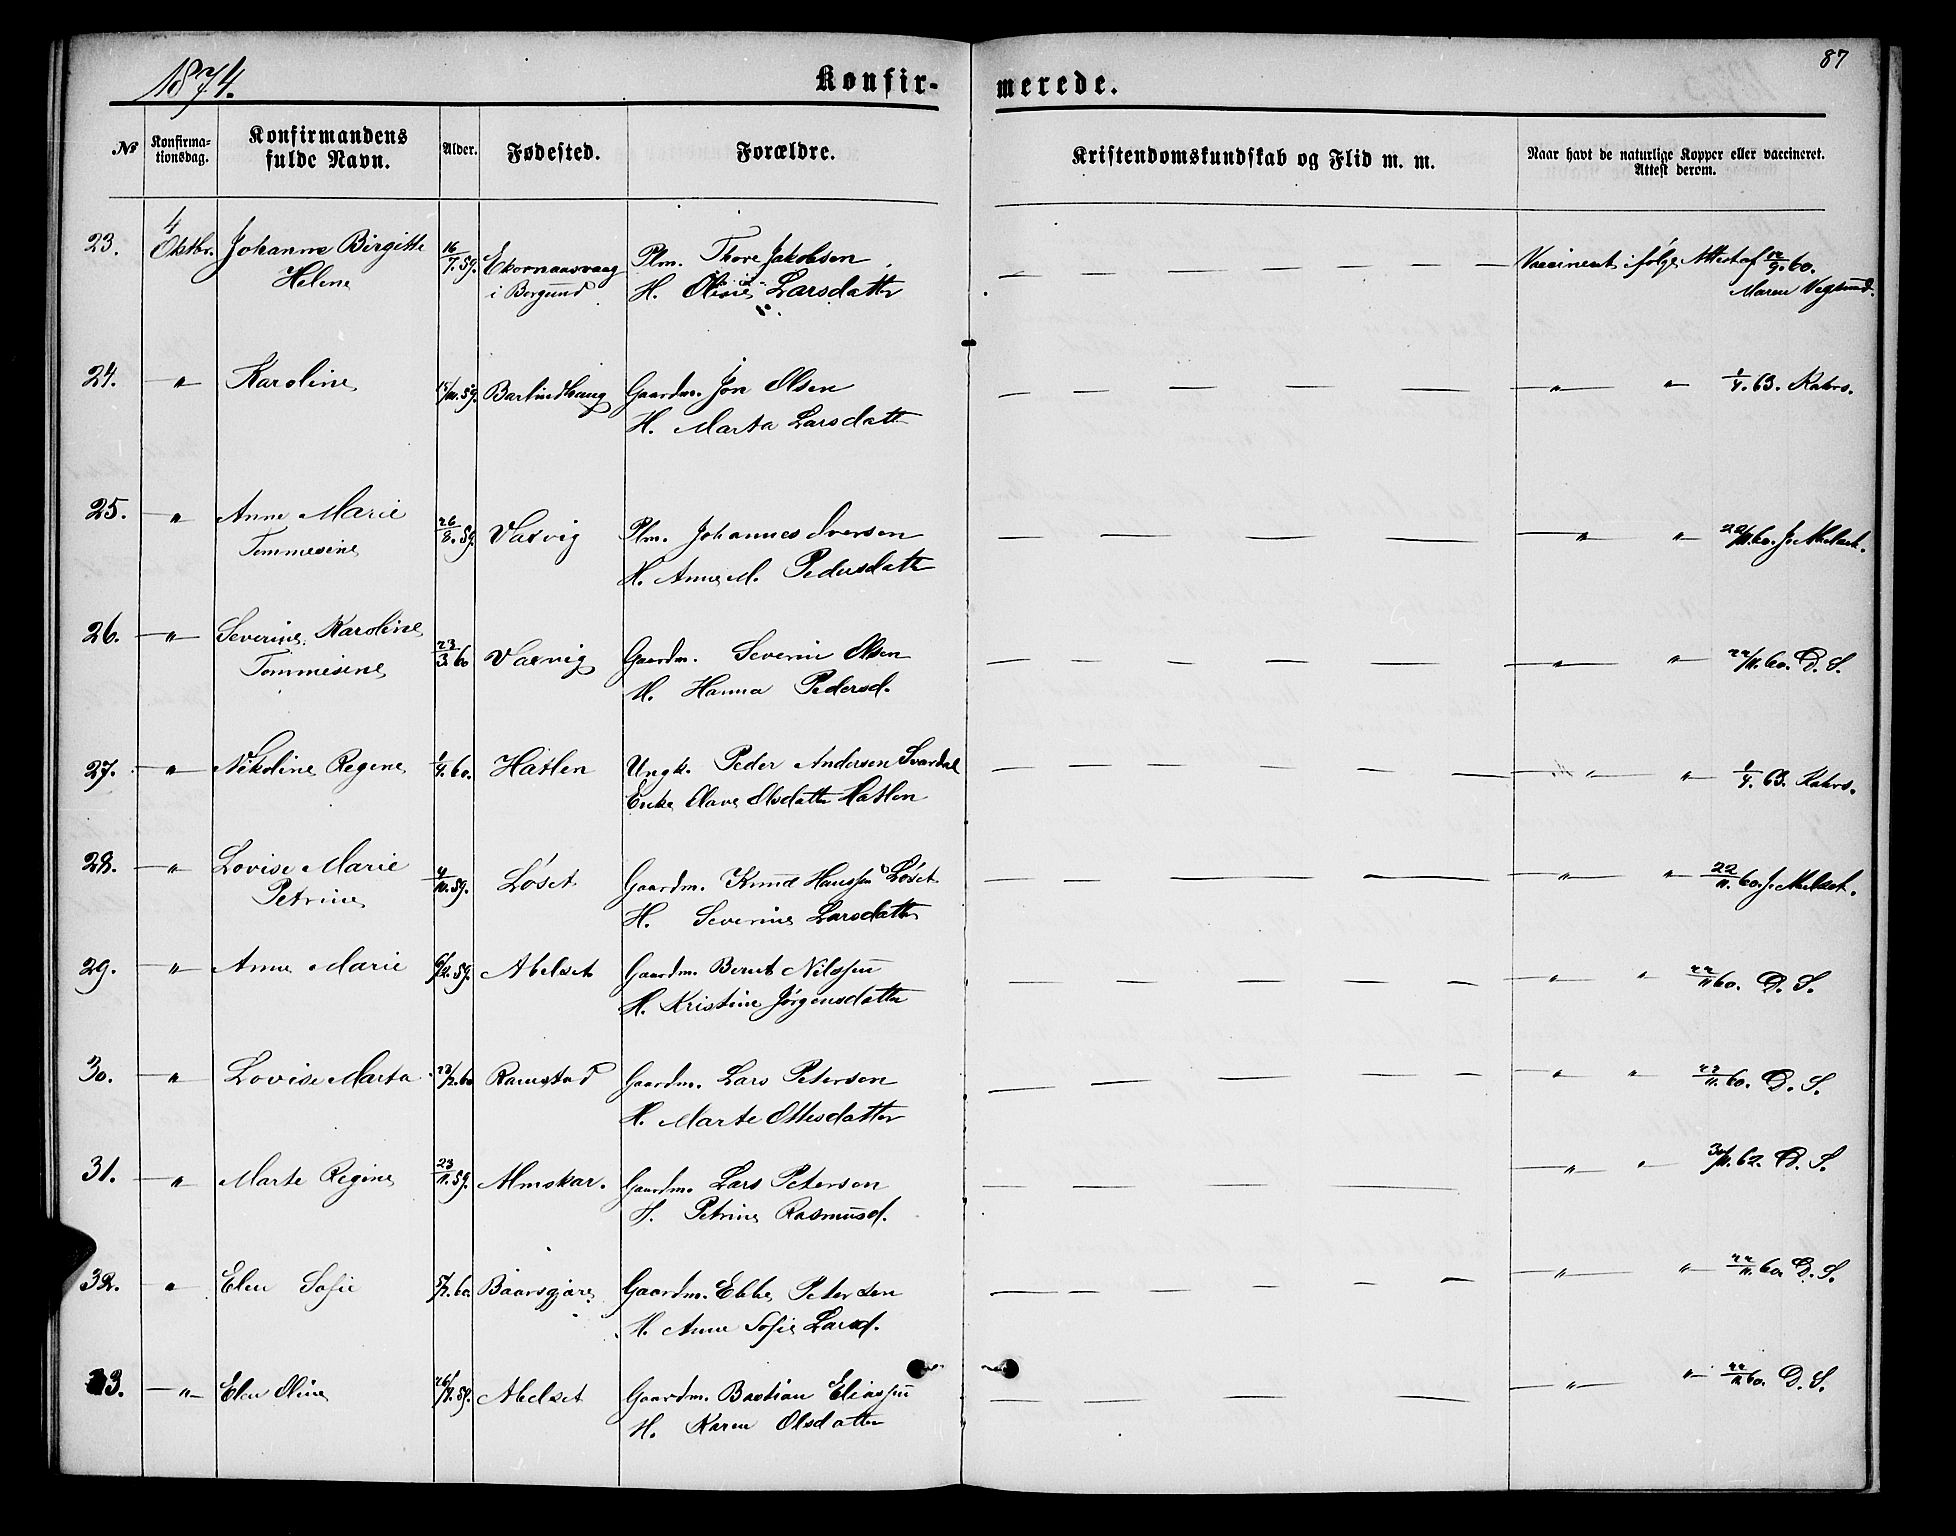 1874.
Konfir-
merede.
87
No
Konfirma-
tionsdag.
Konfirmandens
fulde Navn.
Alder.
Fødested.
Forældre.
Kristendomskundskab og Flid m. m.
Naar havt de naturlige Kopper eller vaccineret.
Attest derom.
23. 4 Oktbr. Johanne Birgitte 16/7.59. Ekornaasvaag Plm. Thore Jakobsen — — — — — — — Vaccineret ifølge Attest af 12/9.60.
Helene i Borgund H. Olivie Larsdatter Maren Vegsund.
24. — " Karoline 15/11.59. Barlindhaug Gaardm. Jon Olsen — — — — — — " " 1/4.63. Kahrs.
H. Marta Larsdatter
25. — " — Anne Marie 26/8.59. Vasvig Plm. Johannes Iversen — — — — — " — " 22/11.60. J. Melset.
Tommesine H. Anne M. Pedersdatter
26. — " — Severine Karoline 23/3.60 Vasvig Gaardm. Severin Olsen — — — — — — — " — " 22/11.60. D. S.
Tommesine H. Hanna Pedersd.
27. — " — Nikoline Regine 1/4.60. Hatlen Ungk. Peder Andersen Svardal — — — — — — " — " 1/4.63. Kahrs.
Enke Olave Olsdatter Hatlen
28. — " — Lovise Marie 4/10.59. Løset Gaardm. Knud Hanssen Løset — — — — — — " — " 22/11.60. J. Melset.
Petrine H. Severine Larsdatter
29. — " — Anne Marie 9/12.59. Abelset Gaardm. Bernt Nilssen — — — — — — " — " 22/11.60. D. S.
H. Kristine Jørgensdatter
30. — " — Lovise Marta 23/2.60 Ramstad Gaardm. Lars Petersen — — — — — — " " 22/11.60. D. S.
H. Marte Ottesdatter
31. — " — Marte Regine 23/11.59. Almskar. Gaardm. Lars Petersen — — — — — — " — " 30/11.62. D. S.
H. Petrine Rasmusd.
32. " Elen Sofie 5/2.60. Baarsgjære Gaardm. Ebbe Petersen — — — — — — — " — " 22/11.60. D. S.
H. Anne Sofie Larsd.
33. — " — Elen Oline 26/12.59. Abelset Gaardm. Bastian Eliassen — — — — — — " — " 22/11.60. D. S.
H. Karen Olsdatter